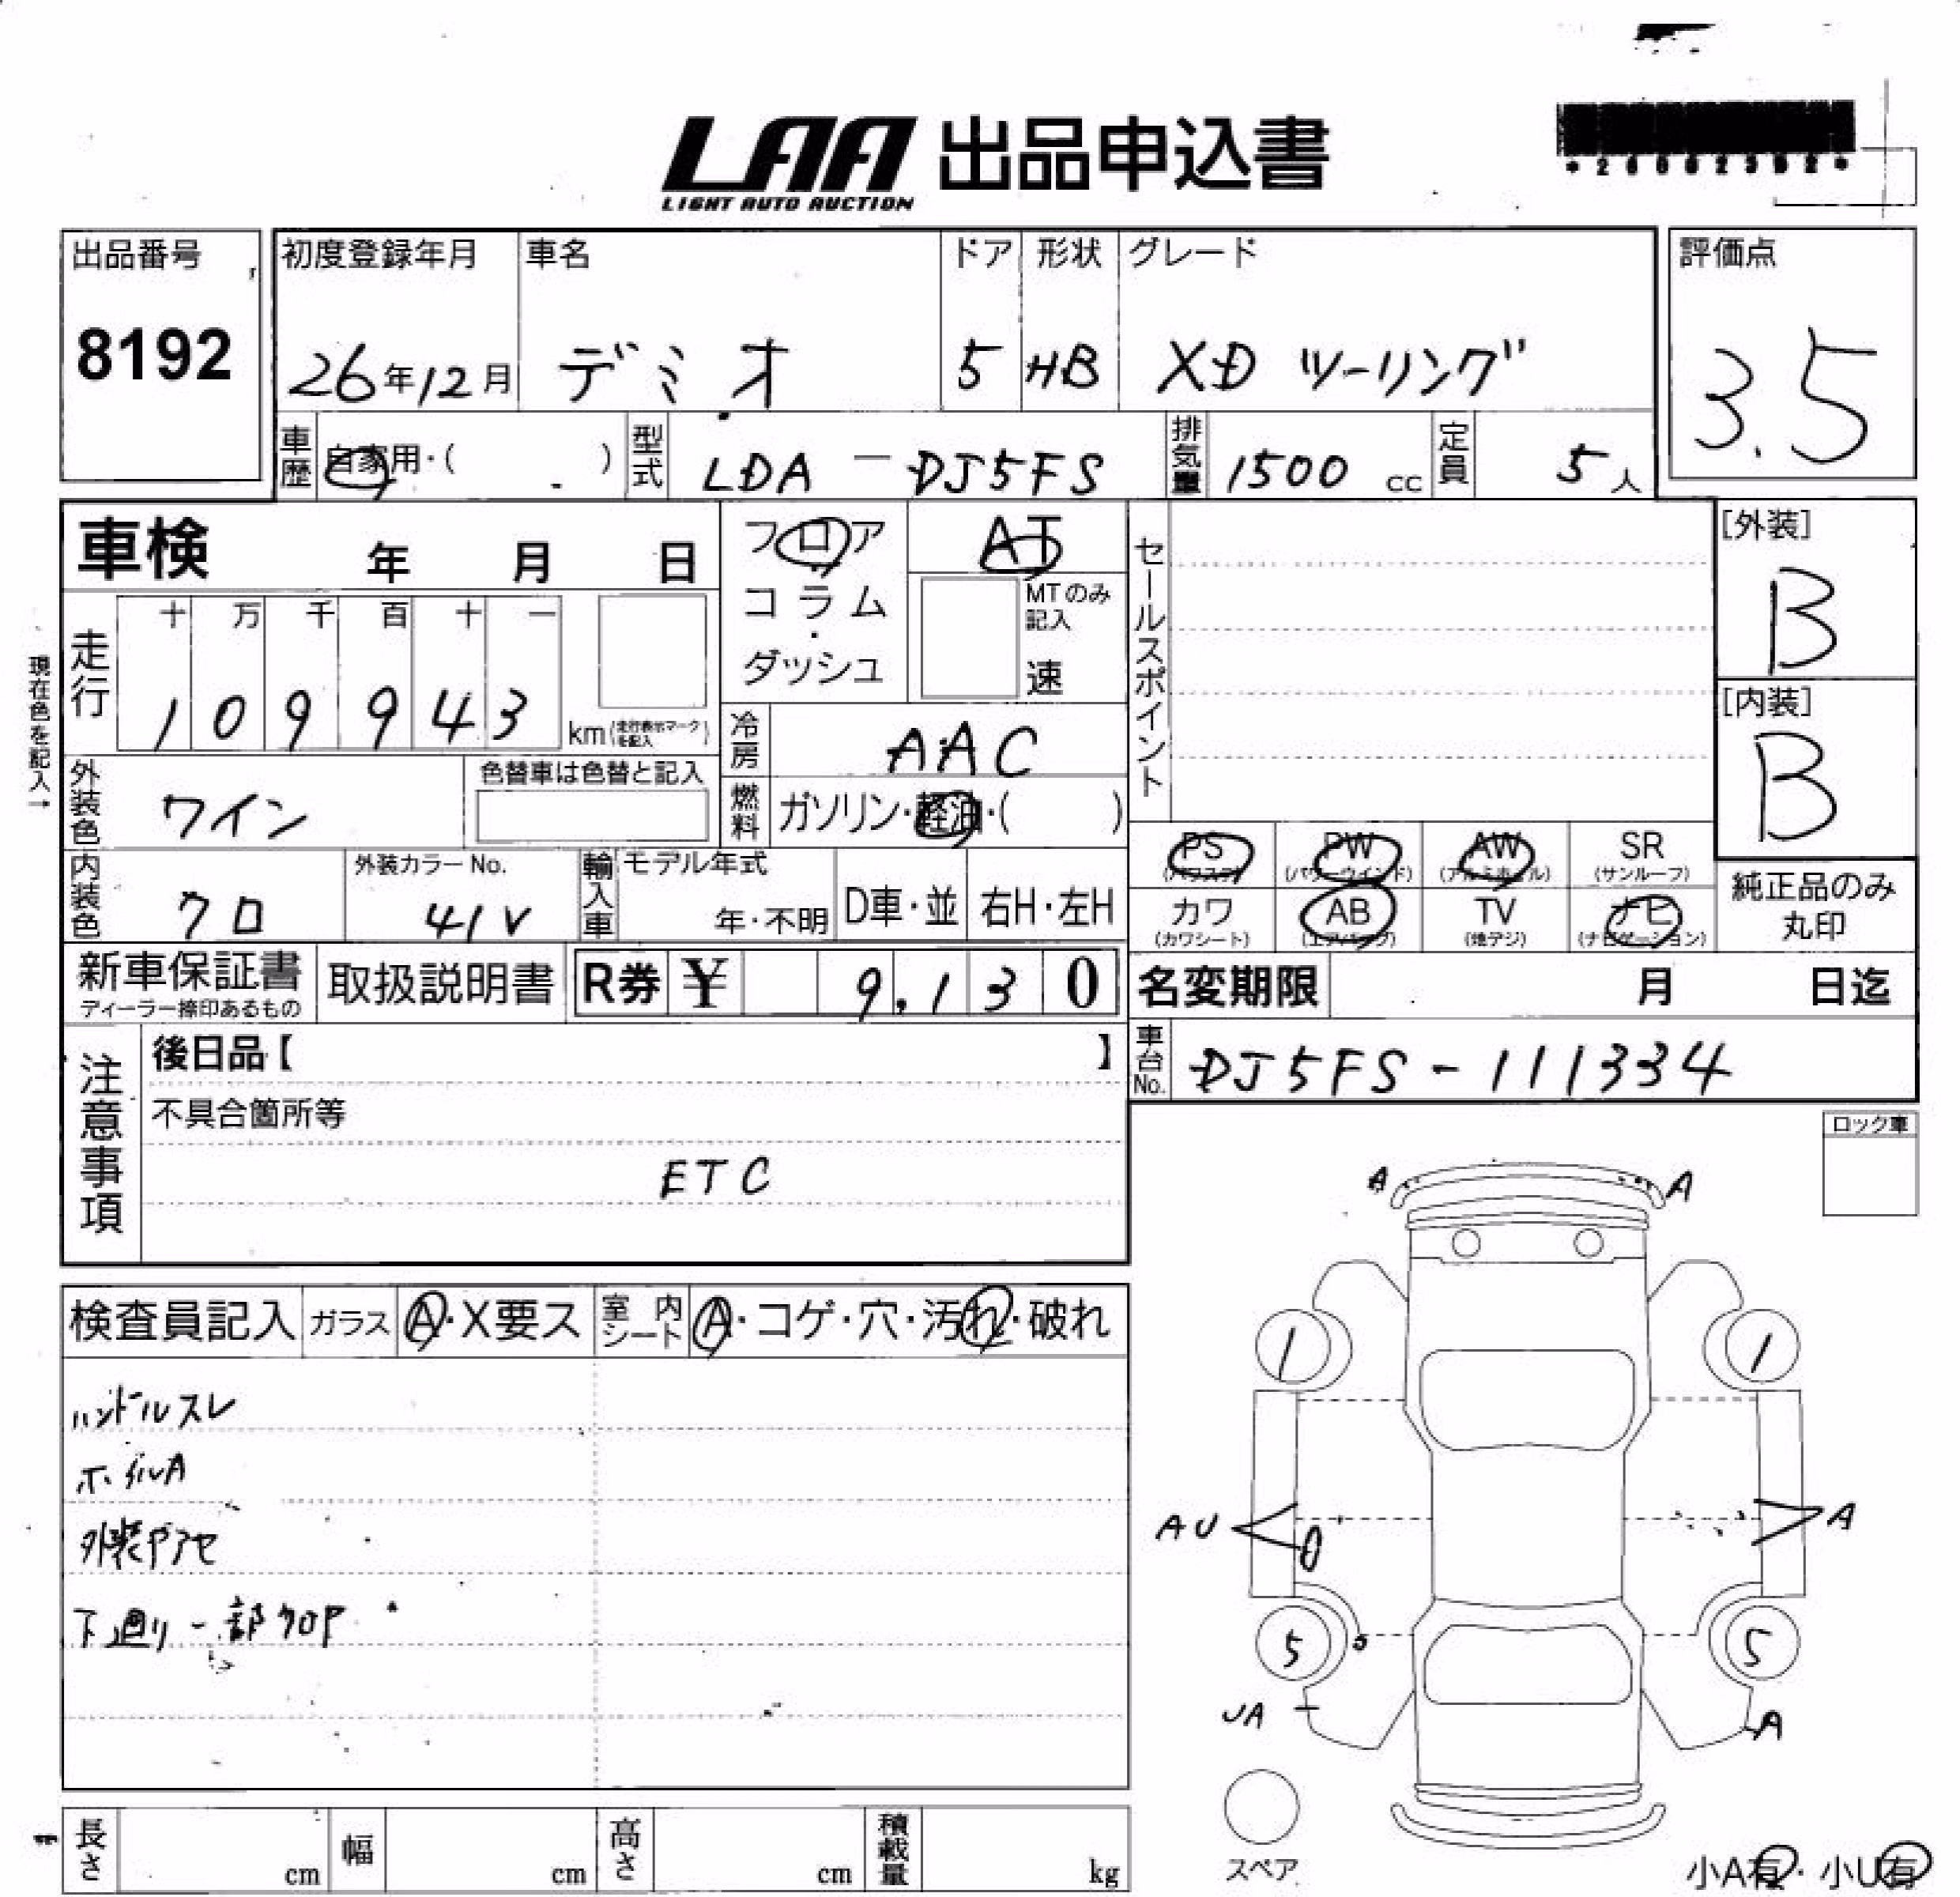 LAA 出品申込書
LIGHT AUTO AUCTION
出品番号
8192
初度登録年月
26年12月
車名
デミオ
ドア
5
形状
HB
グレード
XD ツーリング
評価点
3.5
車歴
自家用・( )
型式
LDA-DJ5FS
排気量
1500 cc
定員
5人
車検 年 月 日
フロア
コラム
・
ダッシュ
AT
MTのみ記入
速
セールスポイント
[外装]
B
[内装]
B
現在色を記入→
走行
十 万 千 百 十 一
1 0 9 9 4 3
km(走行表示マークを記入)
冷房
AAC
外装色
ワイン
色替車は色替と記入
燃料
ガソリン・軽油・( )
PS (パワステ)
PW (パワーウインド)
AW (アルミホイル)
SR (サンルーフ)
カワ (カワシート)
AB (エアバッグ)
TV (地デジ)
ナビ (ナビゲーション)
純正品のみ
丸印
内装色
クロ
外装カラーNo.
41V
輸入車
モデル年式
年・不明
D車・並
右H・左H
新車保証書
ディーラー捺印あるもの
取扱説明書
R券 ¥ 9,130
名変期限 月 日迄
車台No.
DJ5FS-111334
注意事項
後日品【 】
不具合箇所等
ETC
ロック車
検査員記入
ガラス
A・X要ス
室内シート
A・コゲ・穴・汚れ・破れ
ハンドルスレ
ホイルA
外装ヤアセ
下廻り一部クロP
A
A
1
1
AU
A
5
5
UA
A
スペア
小A有・小U有
長さ cm
幅 cm
高さ cm
積載量 kg